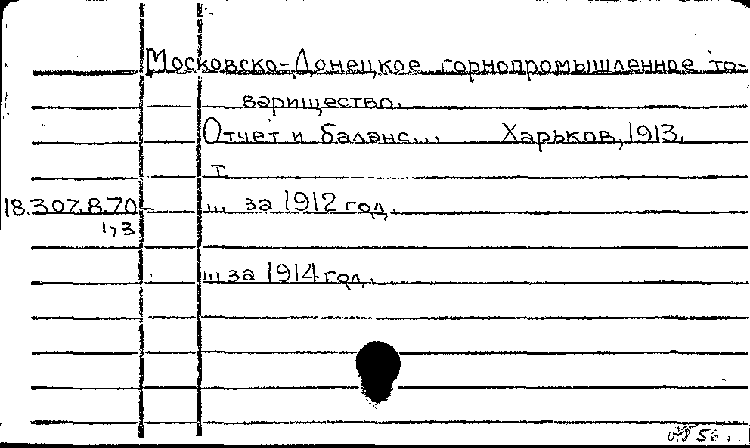 Московско-Донецкое горнопромышленное то-
варищество.
Отчет и баланс... Харьков, 1913.
т.
18.307.8.70 ... за 1912 год.
1,3
... за 1914 год.
56